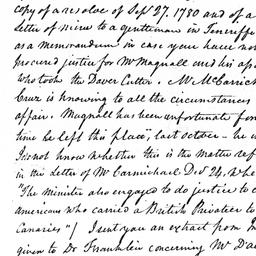 copy of a resolve of Sept 27, 1780 and of a
letter of mine to a gentleman in Teneriffe
as a memorandum in case you have not
procured justice for Mr Magnall and his
who took the Dover Cutter. Mr McCarrick
Cruz is knowing to all the circumstances
affair. Magnall has been unfortunate
time he left this place, last october - he
I do not know whether this is the matter
in the Letter of Mr Carmichael Decr 24, whe
"The Minister also engaged to do justice to
american who carried a British Privateer to
Canaries"/ I sent you an extract from
given to Dr Franklin concerning Mr